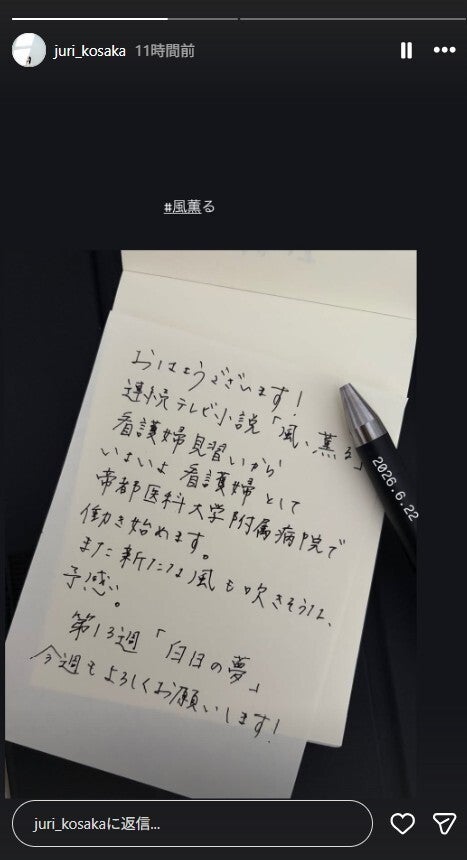 juri_kosaka 11時間前
#風薫る
おはようございます!
連続テレビ小説「風、薫る」
看護婦見習いから
いよいよ看護婦として
帝都医科大学附属病院で
働き始めます。
また新たな風も吹きそうな、
予感。
第13週「白日の夢」
今週もよろしくお願いします!
2026.6.22
juri_kosakaに返信...